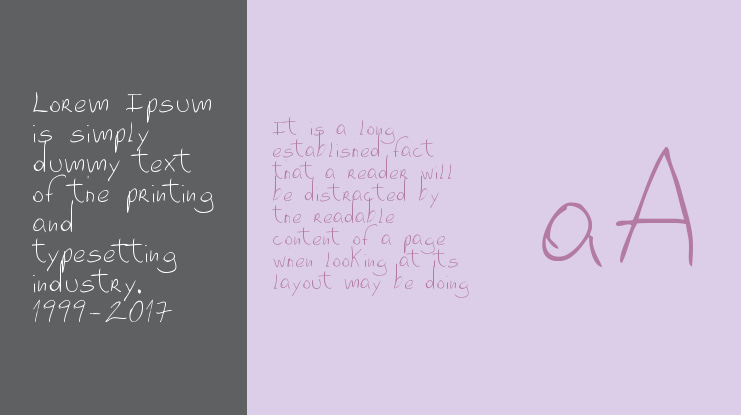 Lorem Ipsum
is simply
dummy text
of the printing
and
typesetting
industry.
1999-2017
It is a long
established fact
that a reader will
be distracted by
the readable
content of a page
when looking at its
layout may be doing
aA